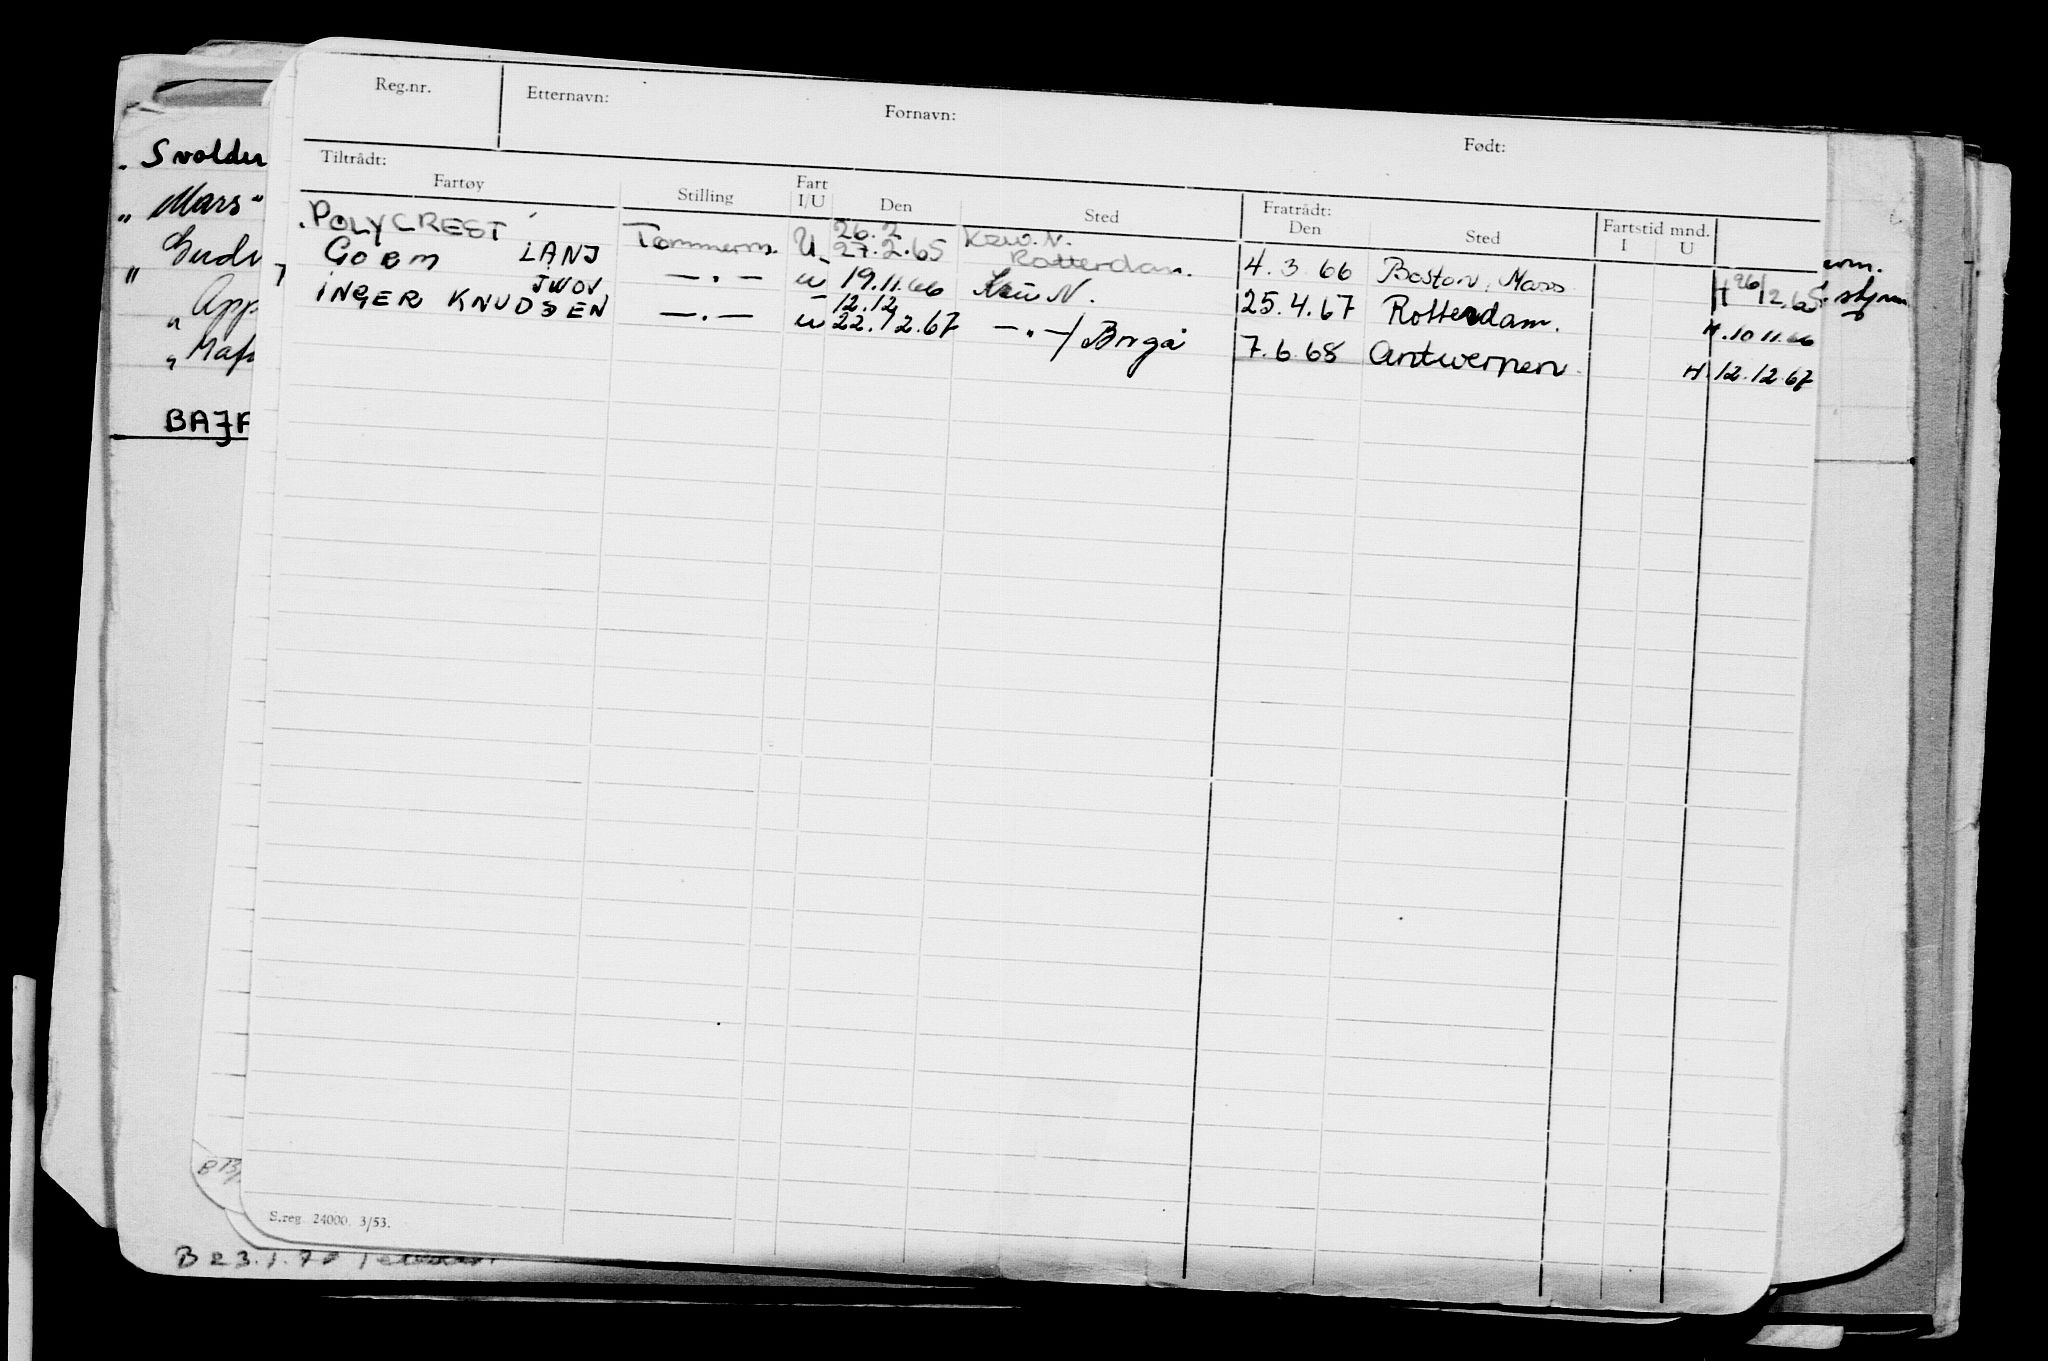 Reg.nr. Etternavn: Fornavn: Født:
Tiltrådt: Fratrådt:
Fartøy Stilling Fart I/U Den Sted Den Sted Fartstid mnd. I U
POLYCREST Tømmerm. U 26.2 27.2.65 Krw.N. Rotterdam. 4.3.66 Boston, Mass H 26/2.65
GORM LANJ — . — u 19.11.66 N. 25.4.67 Rotterdam. H.10 11.66
INGER KNUDSEN — . — u 12.12 22.12.67 — . — / Borgå 7.6.68 Antwerpen H.12.12.67
S.reg. 24000. 3/53.
Svolder
„ Mars"
„
„ App
„
BAJK
B 23.1.7